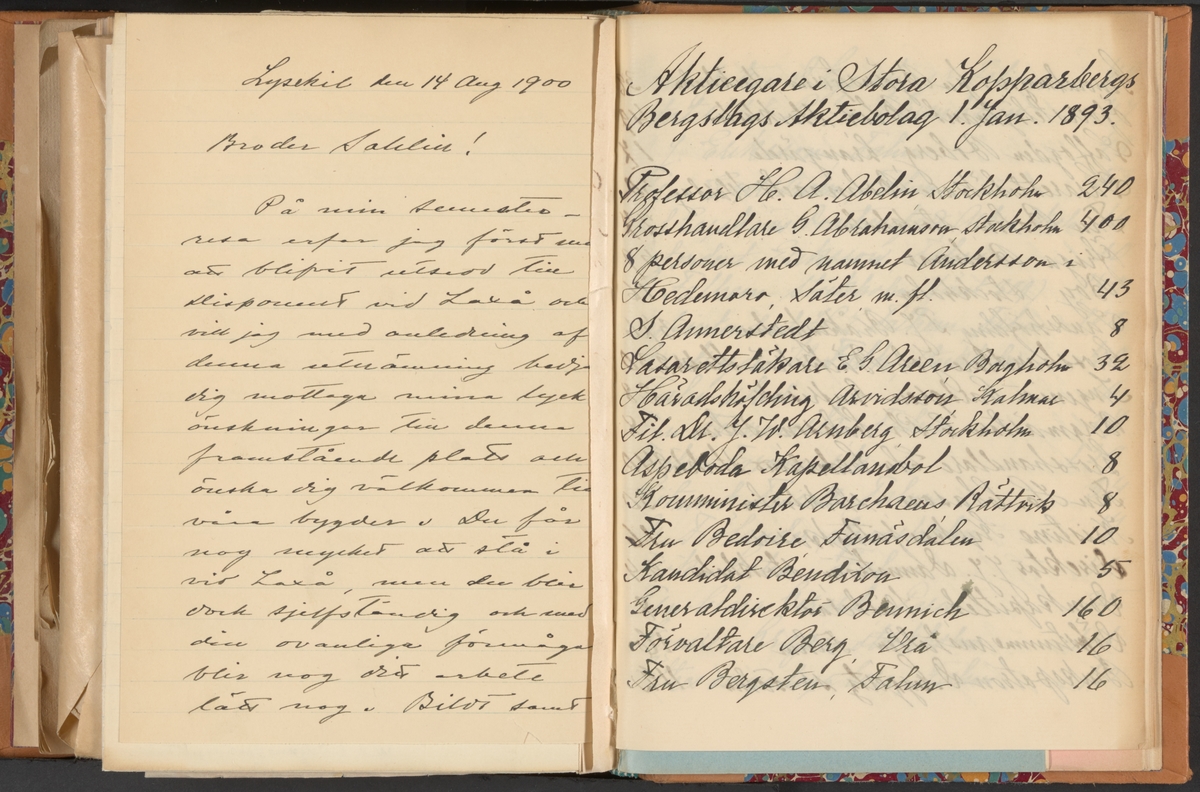 Lysekil den 14 Aug 1900
Broder Sahlin!
På min semester-
resa erfar jag först nu
att blifvit utsedd till
Disponent vid Laxå och
vill jag med anledning af
denna utnämning bedja
dig mottaga mina lyck
önskningar till denna
framstående plats och
önska dig välkommen till
våra bygder. Du får
nog mycket att stå i
vid Laxå, men du blir
dock sjelfständig och med
din ovanliga förmåga
blir nog ditt arbete
lätt nog. Bildt samt
Aktieegare i Stora Kopparbergs
Bergslags Aktiebolag 1. Jan. 1893.
Professor H. A. Abelin Stockholm 240
Grosshandlare G. Abrahamson Stockholm 400
8 personer med namnet Andersson i
Hedemora, Säter m. fl. 43
S. Annerstedt 8
Lasarettsläkare E. G. Areen Borgholm 32
Häradshöfding Arvidsson Kalmar 4
Fil. Dr. J. W. Arnberg Stockholm 10
Aspeboda Kapellansbol 8
Komminister Barchaeus Rättvik 8
Fru Bedoire Funäsdalen 10
Kandidat Bendixon 5
Generaldirektör Bennich 160
Förvaltare Berg, Urå 16
Fru Bergsten, Falun 16